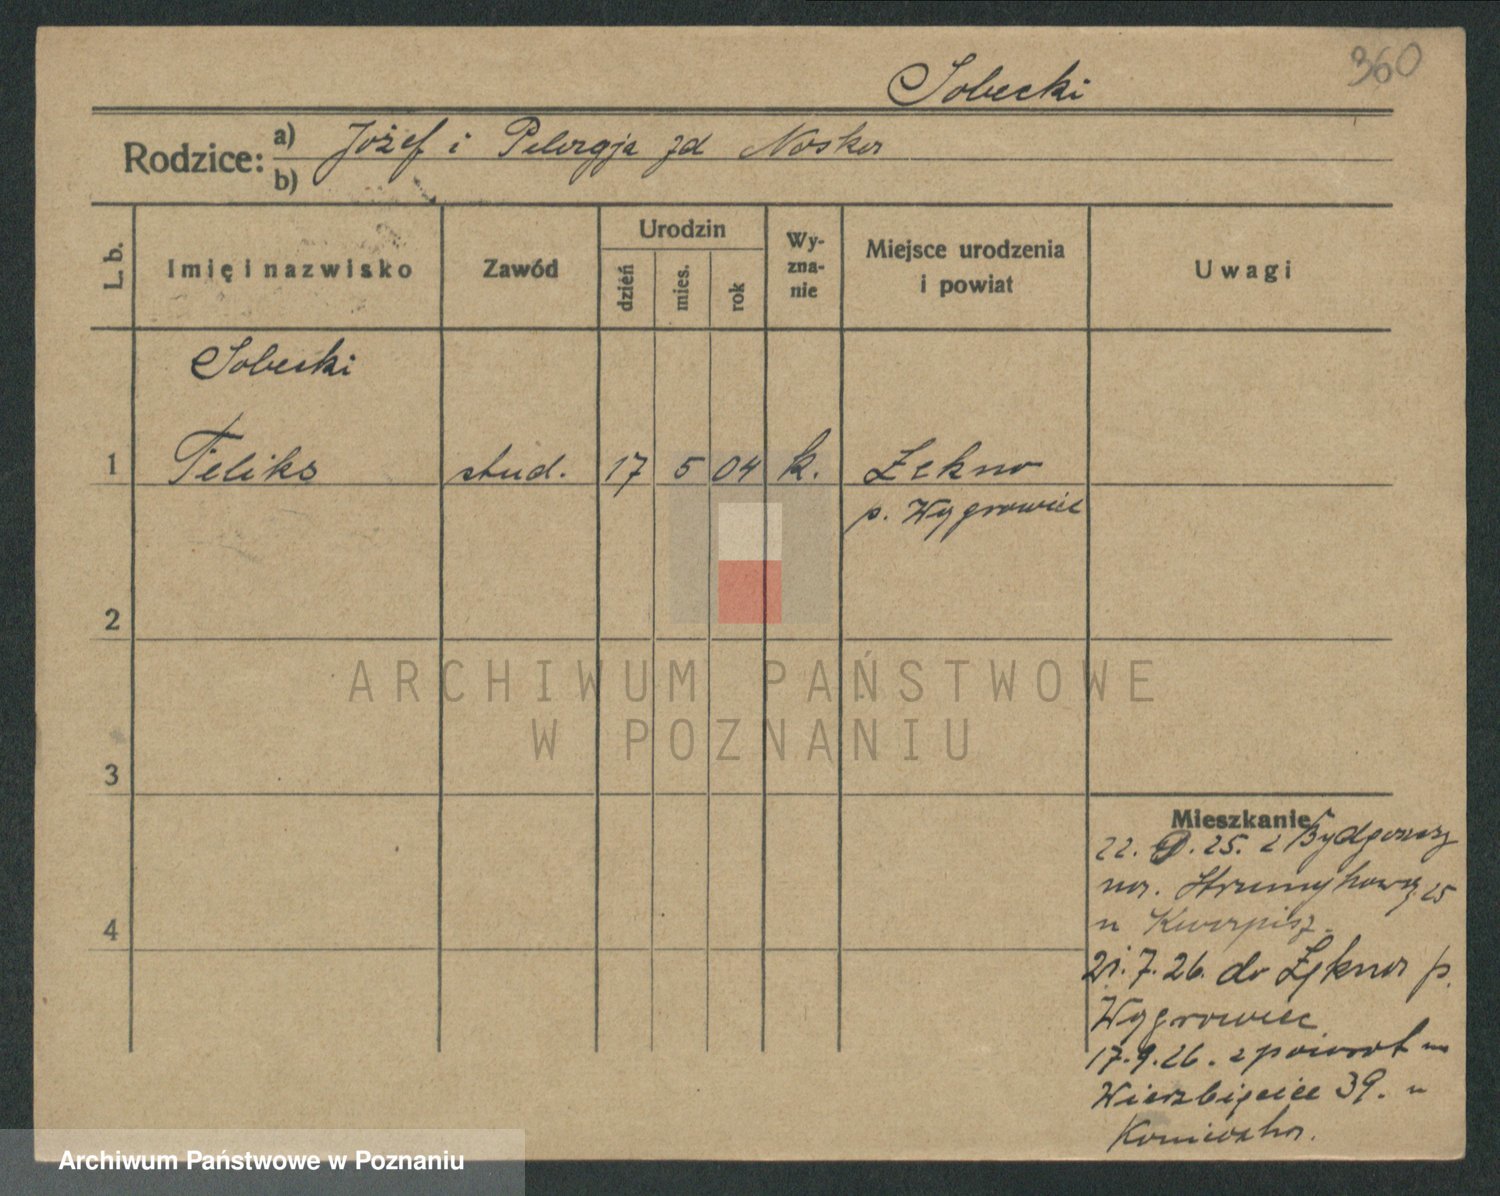 360
Sobecki
Rodzice: a) Józef i Pelagja zd Noskor
b)
L. b.
Imię i nazwisko
Zawód
Urodzin
dzień
mies.
rok
Wy-
zna-
nie
Miejsce urodzenia
i powiat
Uwagi
Sobecki
1 Feliks stud. 17 5 04 k. Łekno
p. Wągrowiec
2
3
4
Mieszkanie
22. 25. z Bydgoszcz
na. Strumykową 25
u
21. 7. 26. do Łękna p.
Wągrowiec
17. 9. 26. z powrot na
Wierzbięcice 39. u
ARCHIWUM PAŃSTWOWE
W POZNANIU
Archiwum Państwowe w Poznaniu